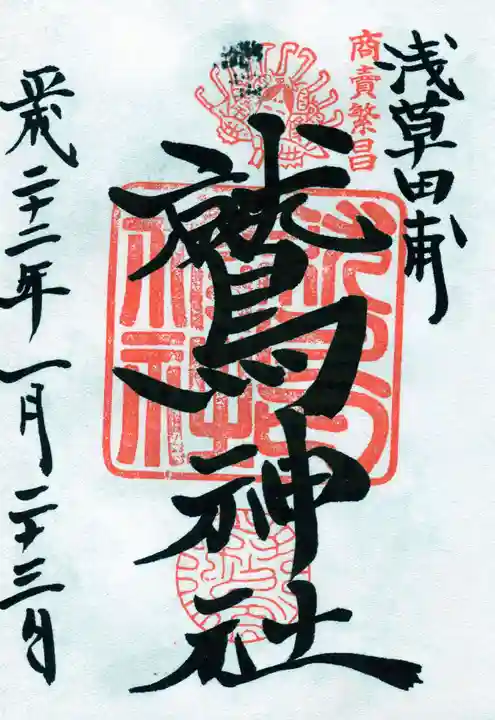 商賣繁昌
浅草田甫
鷲神社
平成二十二年一月二十三日